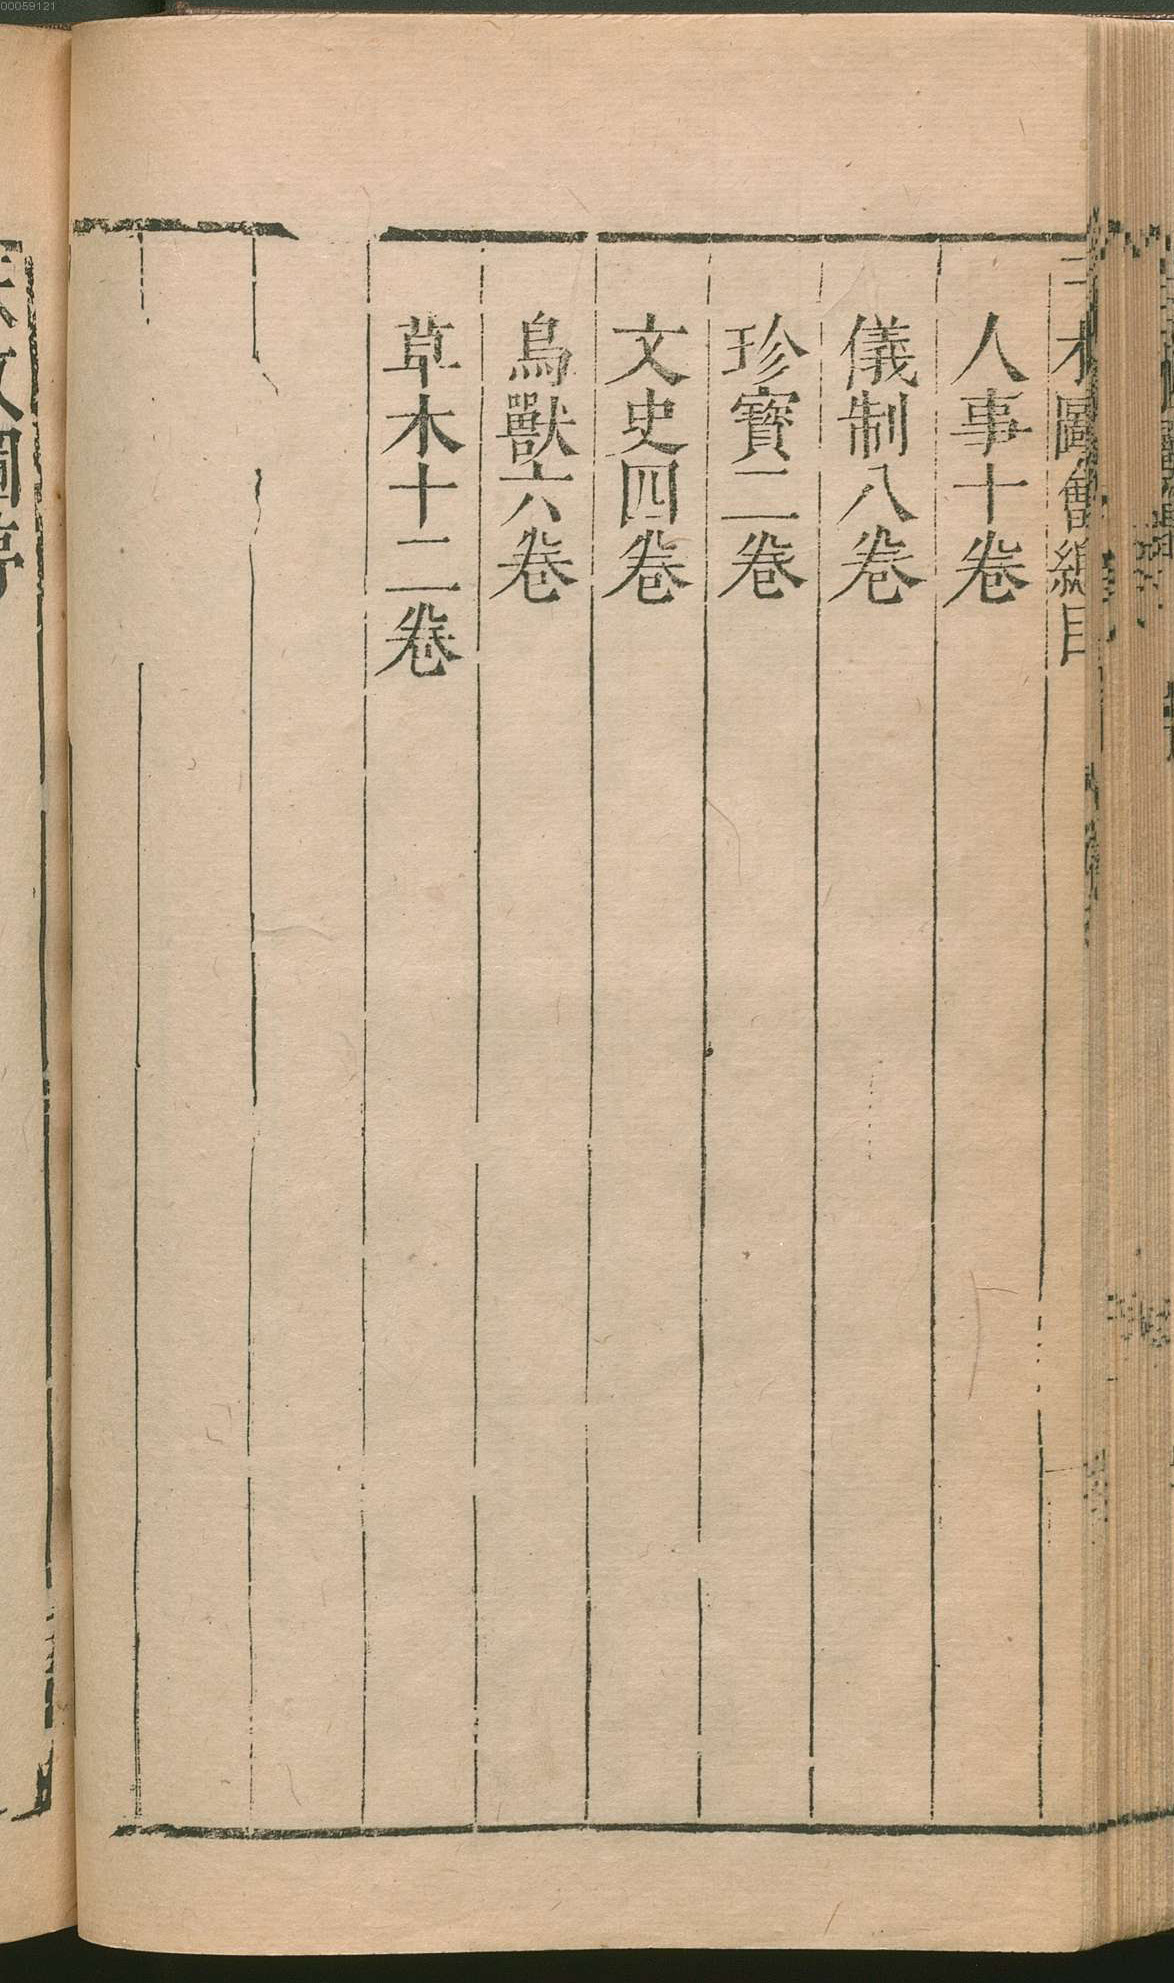 三才圖會總目
人事十卷
儀制八卷
珍寶二卷
文史四卷
鳥獸六卷
草木十二卷
00059121